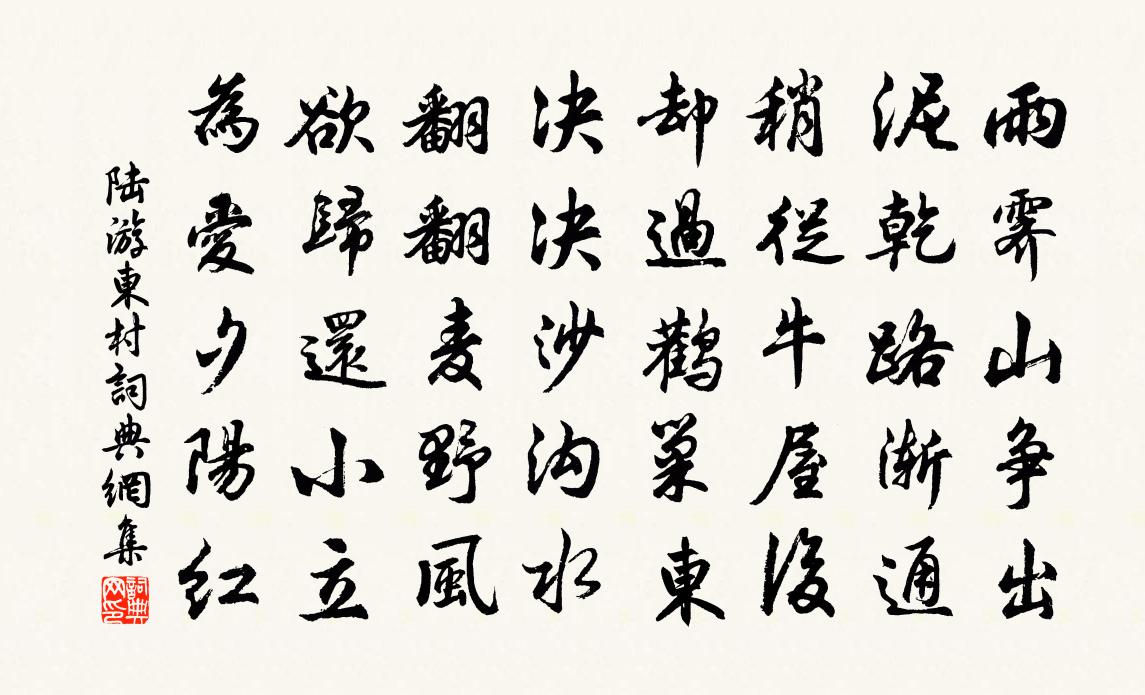 雨霽山爭出
泥乾路漸通
稍從牛屋後
却過鸛巢東
決決沙溝水
翻翻麦野風
欲歸還小立
為愛夕陽紅
陸游東村詞典網集
詞典網印